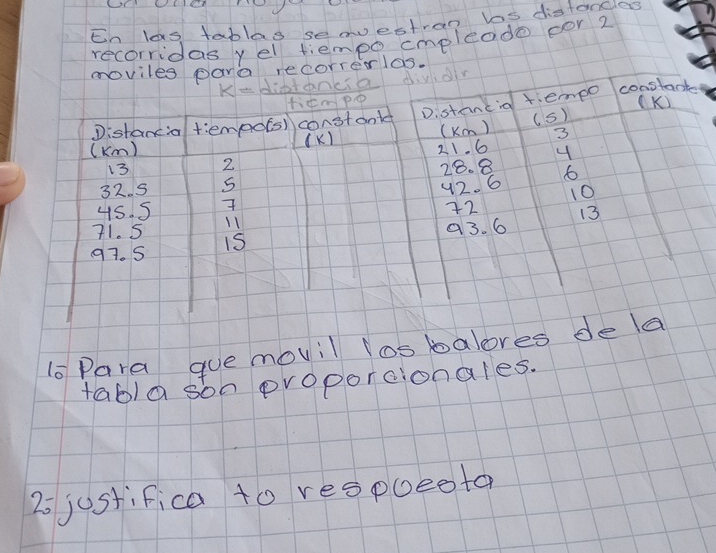 En las tablas se muestran las distancias
recorridas y el tiempo empleado por 2
moviles para recorrerlos.
K = distancia dividir
tiempo
Distancia (Km) tiempo(s) constante (K)
13 2
32.5 5
45.5 7
71.5 11
97.5 15
Distancia (Km) tiempo (s) constante (K)
21.6 3
28.8 4
42.6 6
72 10
93.6 13
1= Para que movil los balores de la
tabla son proporcionales.
2= justifica to respuesta